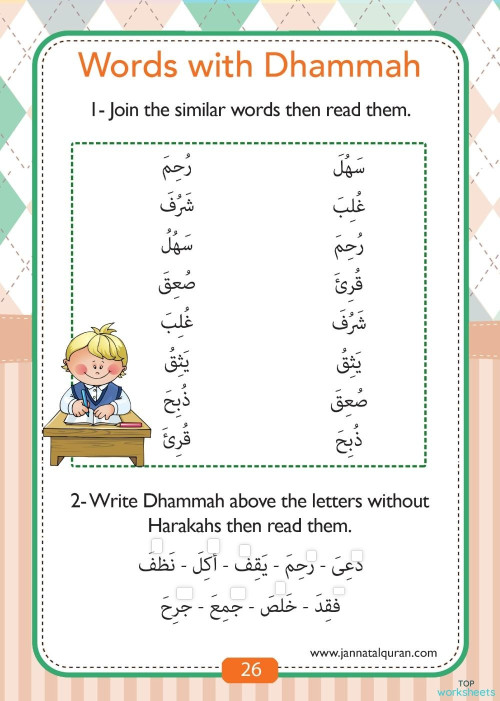 Words with Dhammah
1- Join the similar words then read them.
سَهُلَ رُحِمَ
غُلِبَ شَرُفَ
رُحِمَ سَهُلَ
قُرِئَ صُعِقَ
شَرُفَ غُلِبَ
يَثِقُ يَثِقُ
صُعِقَ ذُبِحَ
ذُبِحَ قُرِئَ
2- Write Dhammah above the letters without
Harakahs then read them.
دعِىَ - رحِمَ - يَقِف - أكِلَ - نَظفَ
فقِدَ - خَلصَ - جمِعَ - جرِحَ
www.jannatalquran.com
26
TOP
worksheets